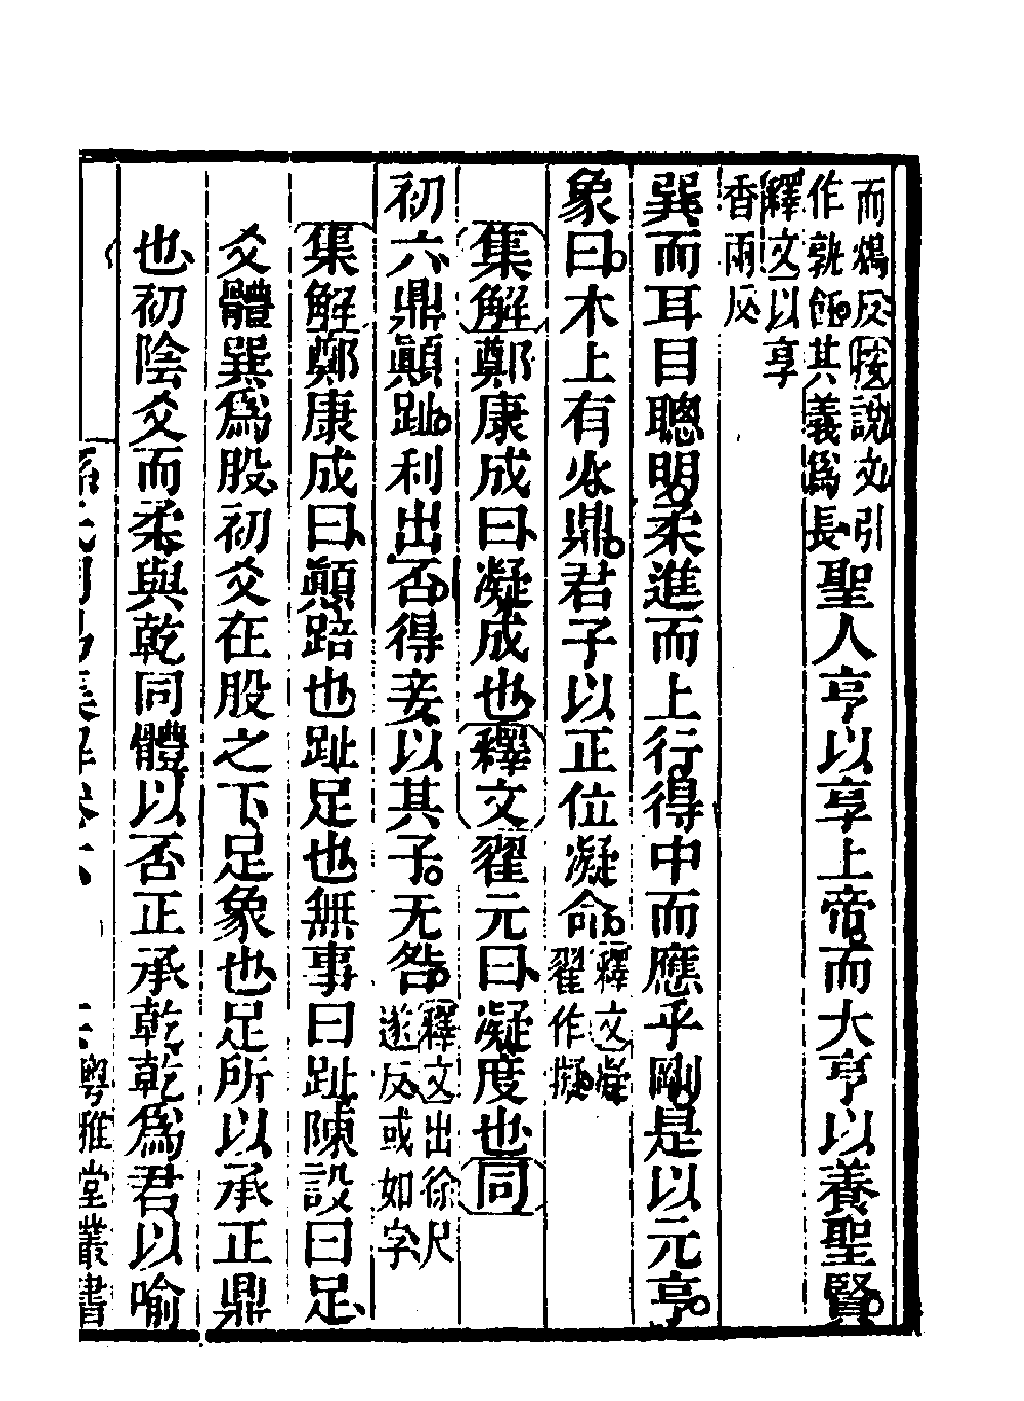 而鴆反按說文引
作孰飪其義爲長
聖人亨以享上帝而大亨以養聖賢
釋文以享
香兩反
巽而耳目聰明柔進而上行得中而應乎剛是以元亨
象曰木上有火鼎君子以正位凝命
釋文凝
翟作擬
集解鄭康成曰凝成也釋文翟元曰凝度也同
初六鼎顚趾利出否得妾以其子无咎
釋文出徐尺
遂反或如字
集解鄭康成曰顚踣也趾足也無事曰趾陳設曰足
爻體巽爲股初爻在股之下足象也足所以承正鼎
也初陰爻而柔與乾同體以否正承乾乾爲君以喻
粤雅堂叢書